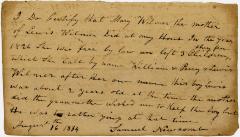 I Do Certify that Mary Wilmer the mother
of Lewis Wilmer Died at my House In the year
1824 She was free by law and left 3 Children, they free
which She Call by name William & Perry & Lewis
Wilmer after her own name this boy Lewis
was about 2 years old at the time the mother
died the grandmother wished me to keep the boy but
He was to rather young at that time
August 16 1834 Samuel Newcomb